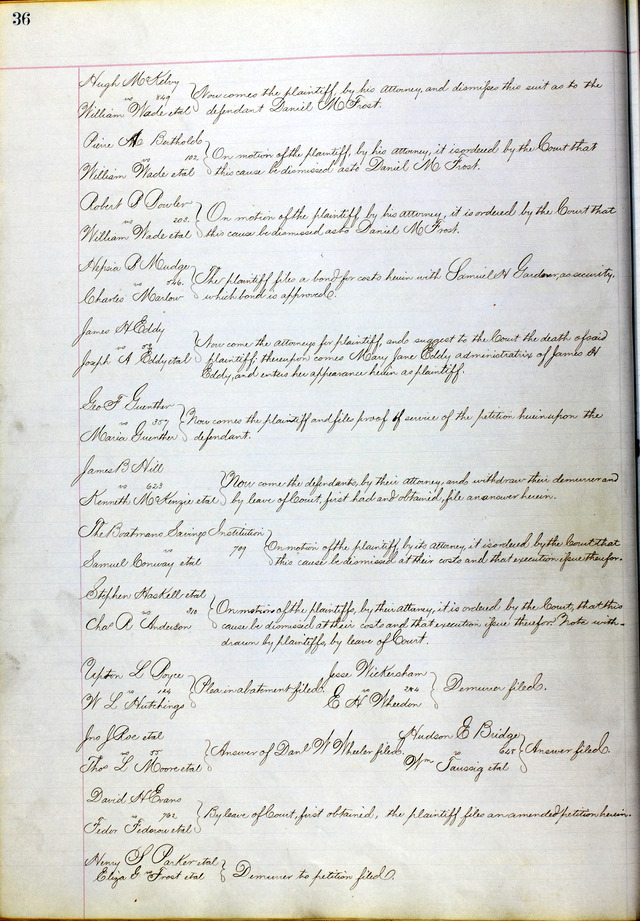 36
Hugh McKelvy
vs 849
William Wade etal
Now comes the plaintiff, by his Attorney, and dismisses this suit as to the
defendant Daniel M Frost.
Pierre A Berthold
vs 102
William Wade etal
On motion of the plaintiff, by his attorney, it is ordered by the Court that
this cause be dismissed as to Daniel M Frost.
Robert P
vs 203.
William Wade etal
On motion of the plaintiff by his Attorney, it is ordered by the Court that
this cause be dismissed as to Daniel M Frost.
Hepsia P Mudge
vs 546.
Charles Marlow
The plaintiff files a bond for costs herein with Samuel H Gardner, as security,
which bond is approved.
James H Eddy
vs
Joseph A Eddy etal
Now come the attorneys for plaintiff, and suggest to the Court the death of said
plaintiff; thereupon comes Mary Jane Eddy administratrix of James H
Eddy, and enters her appearance herein as plaintiff.
Geo F Guenther
vs 357
Maria Guenther
Now comes the plaintiff and files proof of service of the petition herein upon the
defendant.
James B Hill
vs 623
Kenneth McKenzie etal
Now come the defendants, by their Attorney, and withdraw their demurrer and
by leave of Court, first had and obtained, file an answer herein.
The Boatmans Savings Institution
vs 709
Samuel Conway etal
On motion of the plaintiff, by its attorney, it is ordered by the Court that
this cause be dismissed at their costs and that execution issue therefor.
Stephen Haskell etal
vs 210
Chas R Anderson
On motion of the plaintiffs, by their attorney, it is ordered by the Court, that this
cause be dismissed at their costs and that execution issue therefor. Note with-
drawn by plaintiffs, by leave of Court.
Upton L
vs 124
W L Hutchings
Plea in abatement filed.
Jesse Wickersham
vs 284
E H Wheedon
Demurrer filed.
Jno J Roe etal
vs 55
Thos L Moore etal
Answer of Danl W Wheeler filed.
Hudson E Bridge
vs 645
Wm Taussig etal
Answer filed.
David H Evans
vs 792
Fedor Fedorow etal
By leave of Court, first obtained, the plaintiff files an amended petition herein.
Henry S Parker etal
vs
Eliza E Frost etal
Demurrer to petition filed.